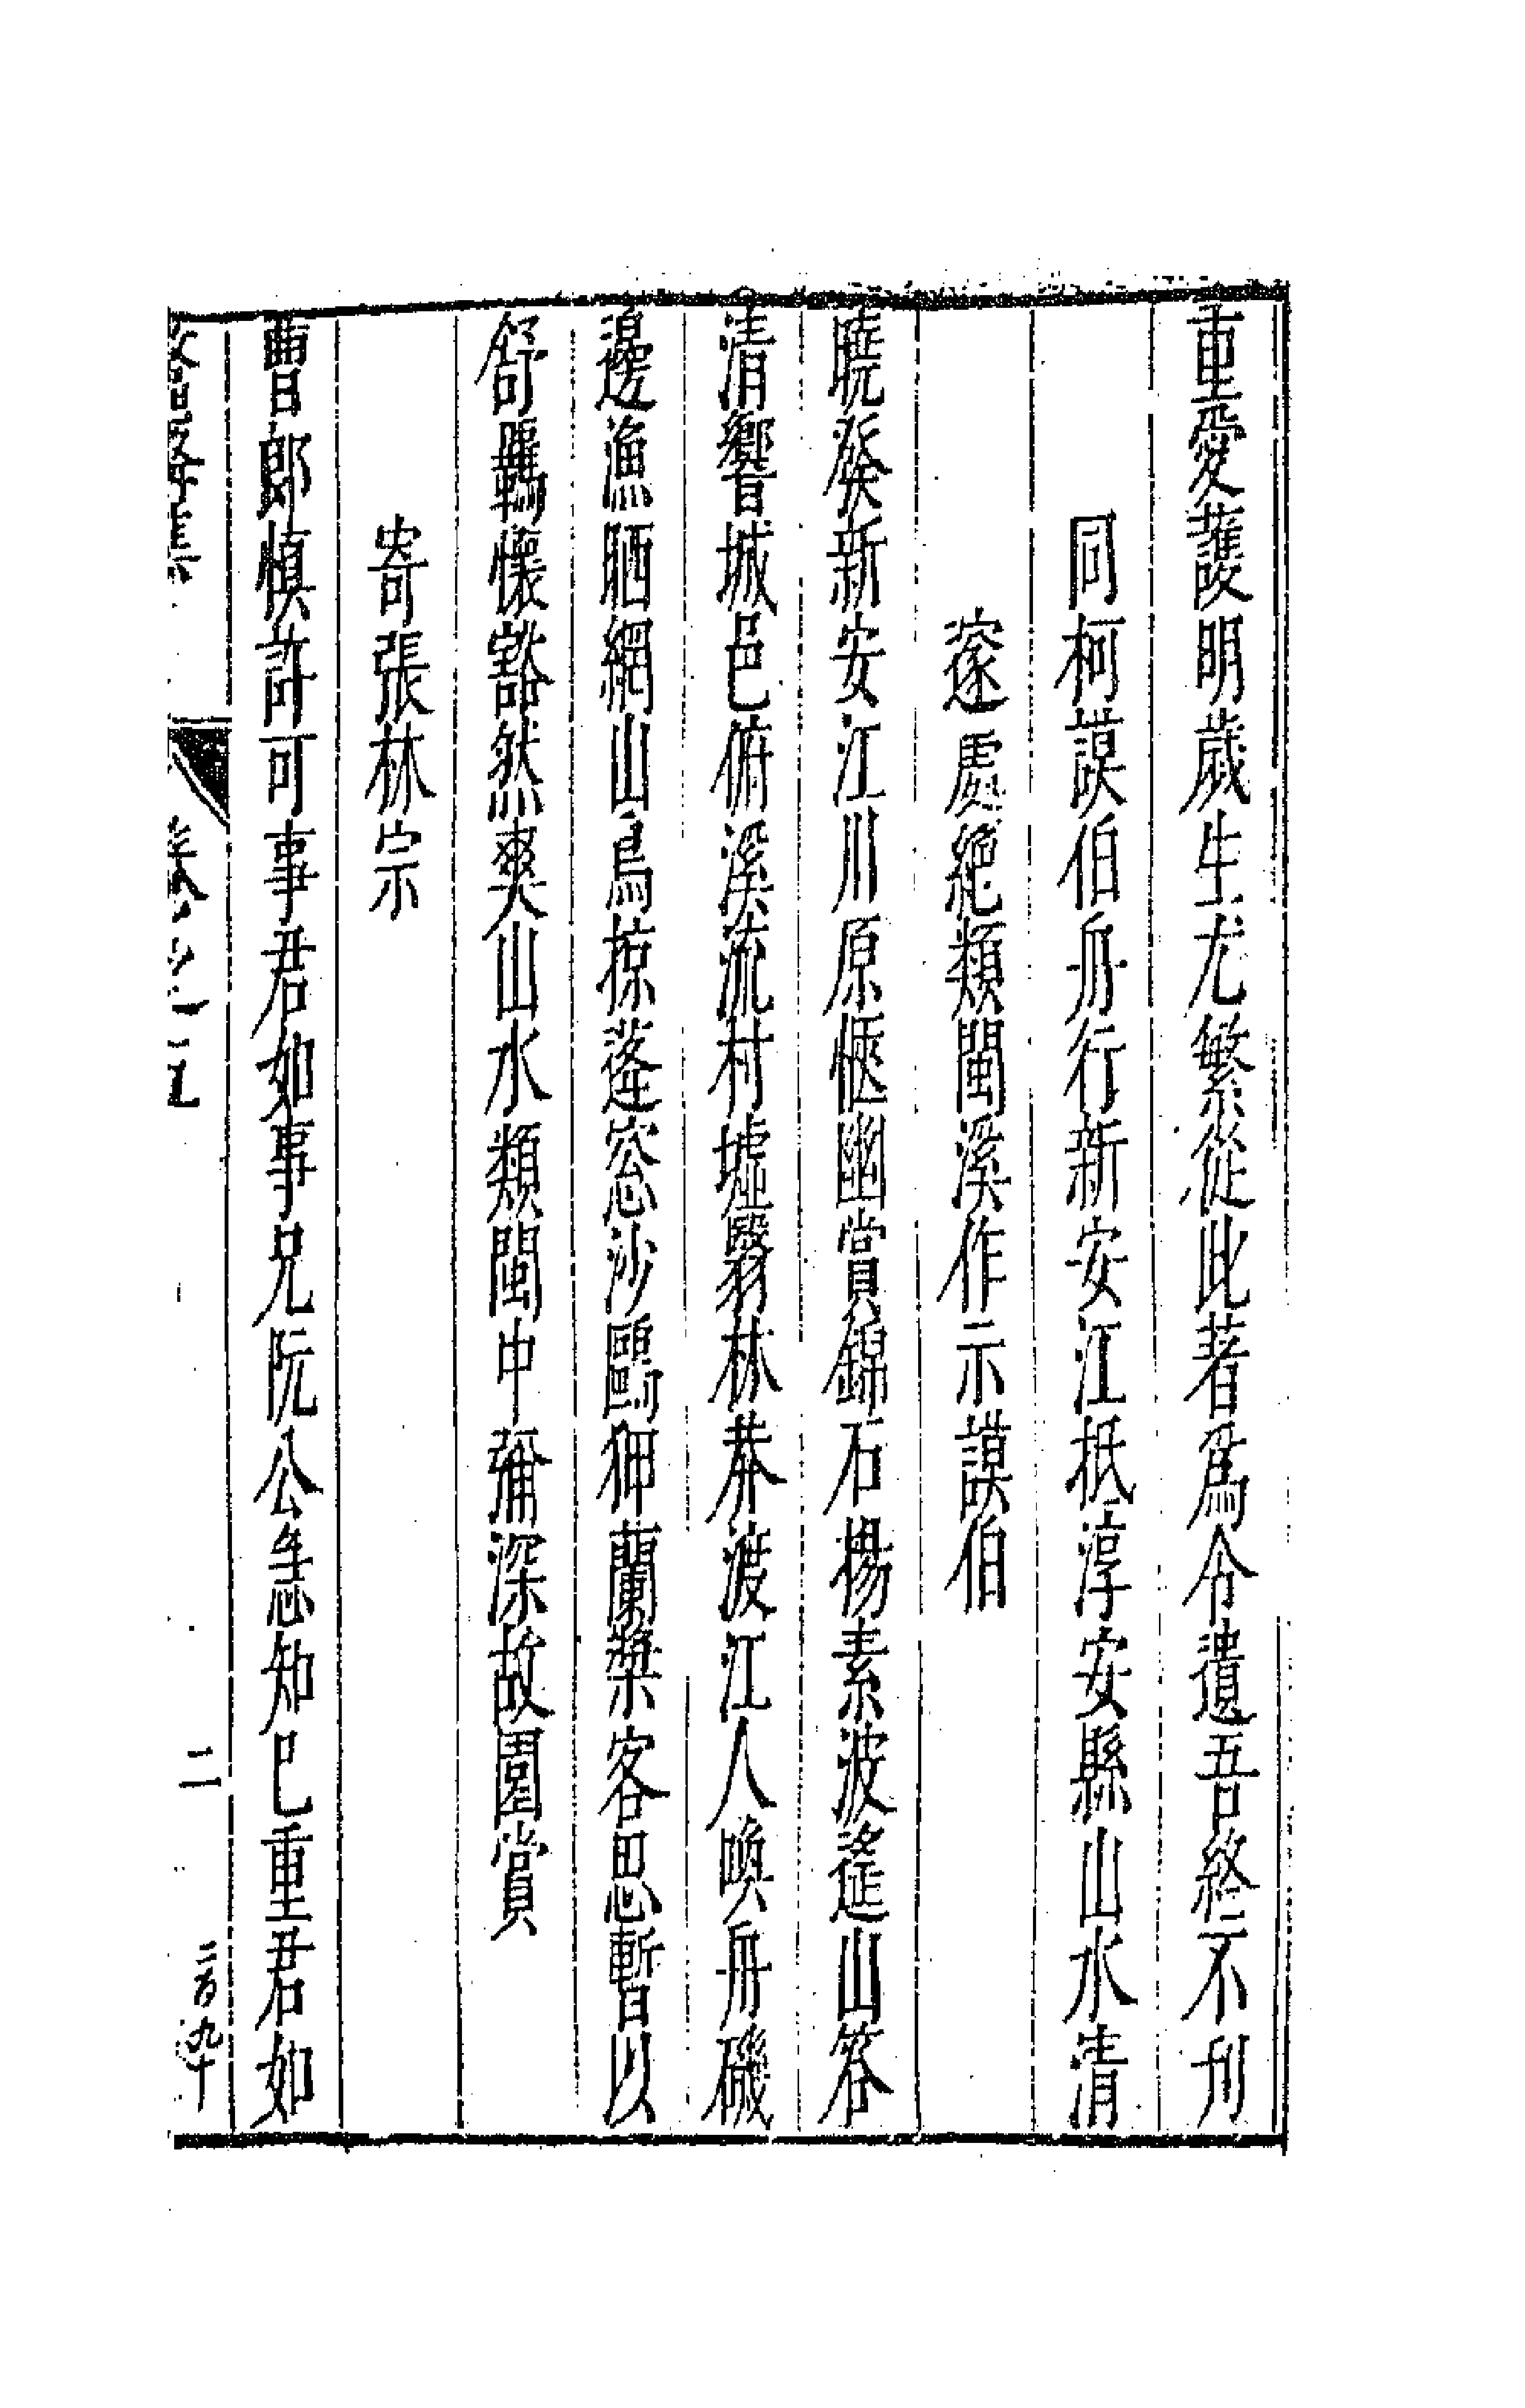 重愛護明歲生尤繁從此著爲令遺吾終不刊
同柯謨伯舟行新安江抵淳安縣山水清
邃處絕類閩溪作示謨伯
曉發新安江川原愜幽賞錦石楊素波遙山答
清響城邑俯溪流村墟翳林莽渡江人喚舟磯
邊漁晒網山鳥掠蓬窓沙鷗狎蘭槳客思暫以
舒羈懷豁然爽山水類閩中彌深故園賞
寄張林宗
曹郎慎許可事君如事兄阮公急知已重君如
集 卷之二 二